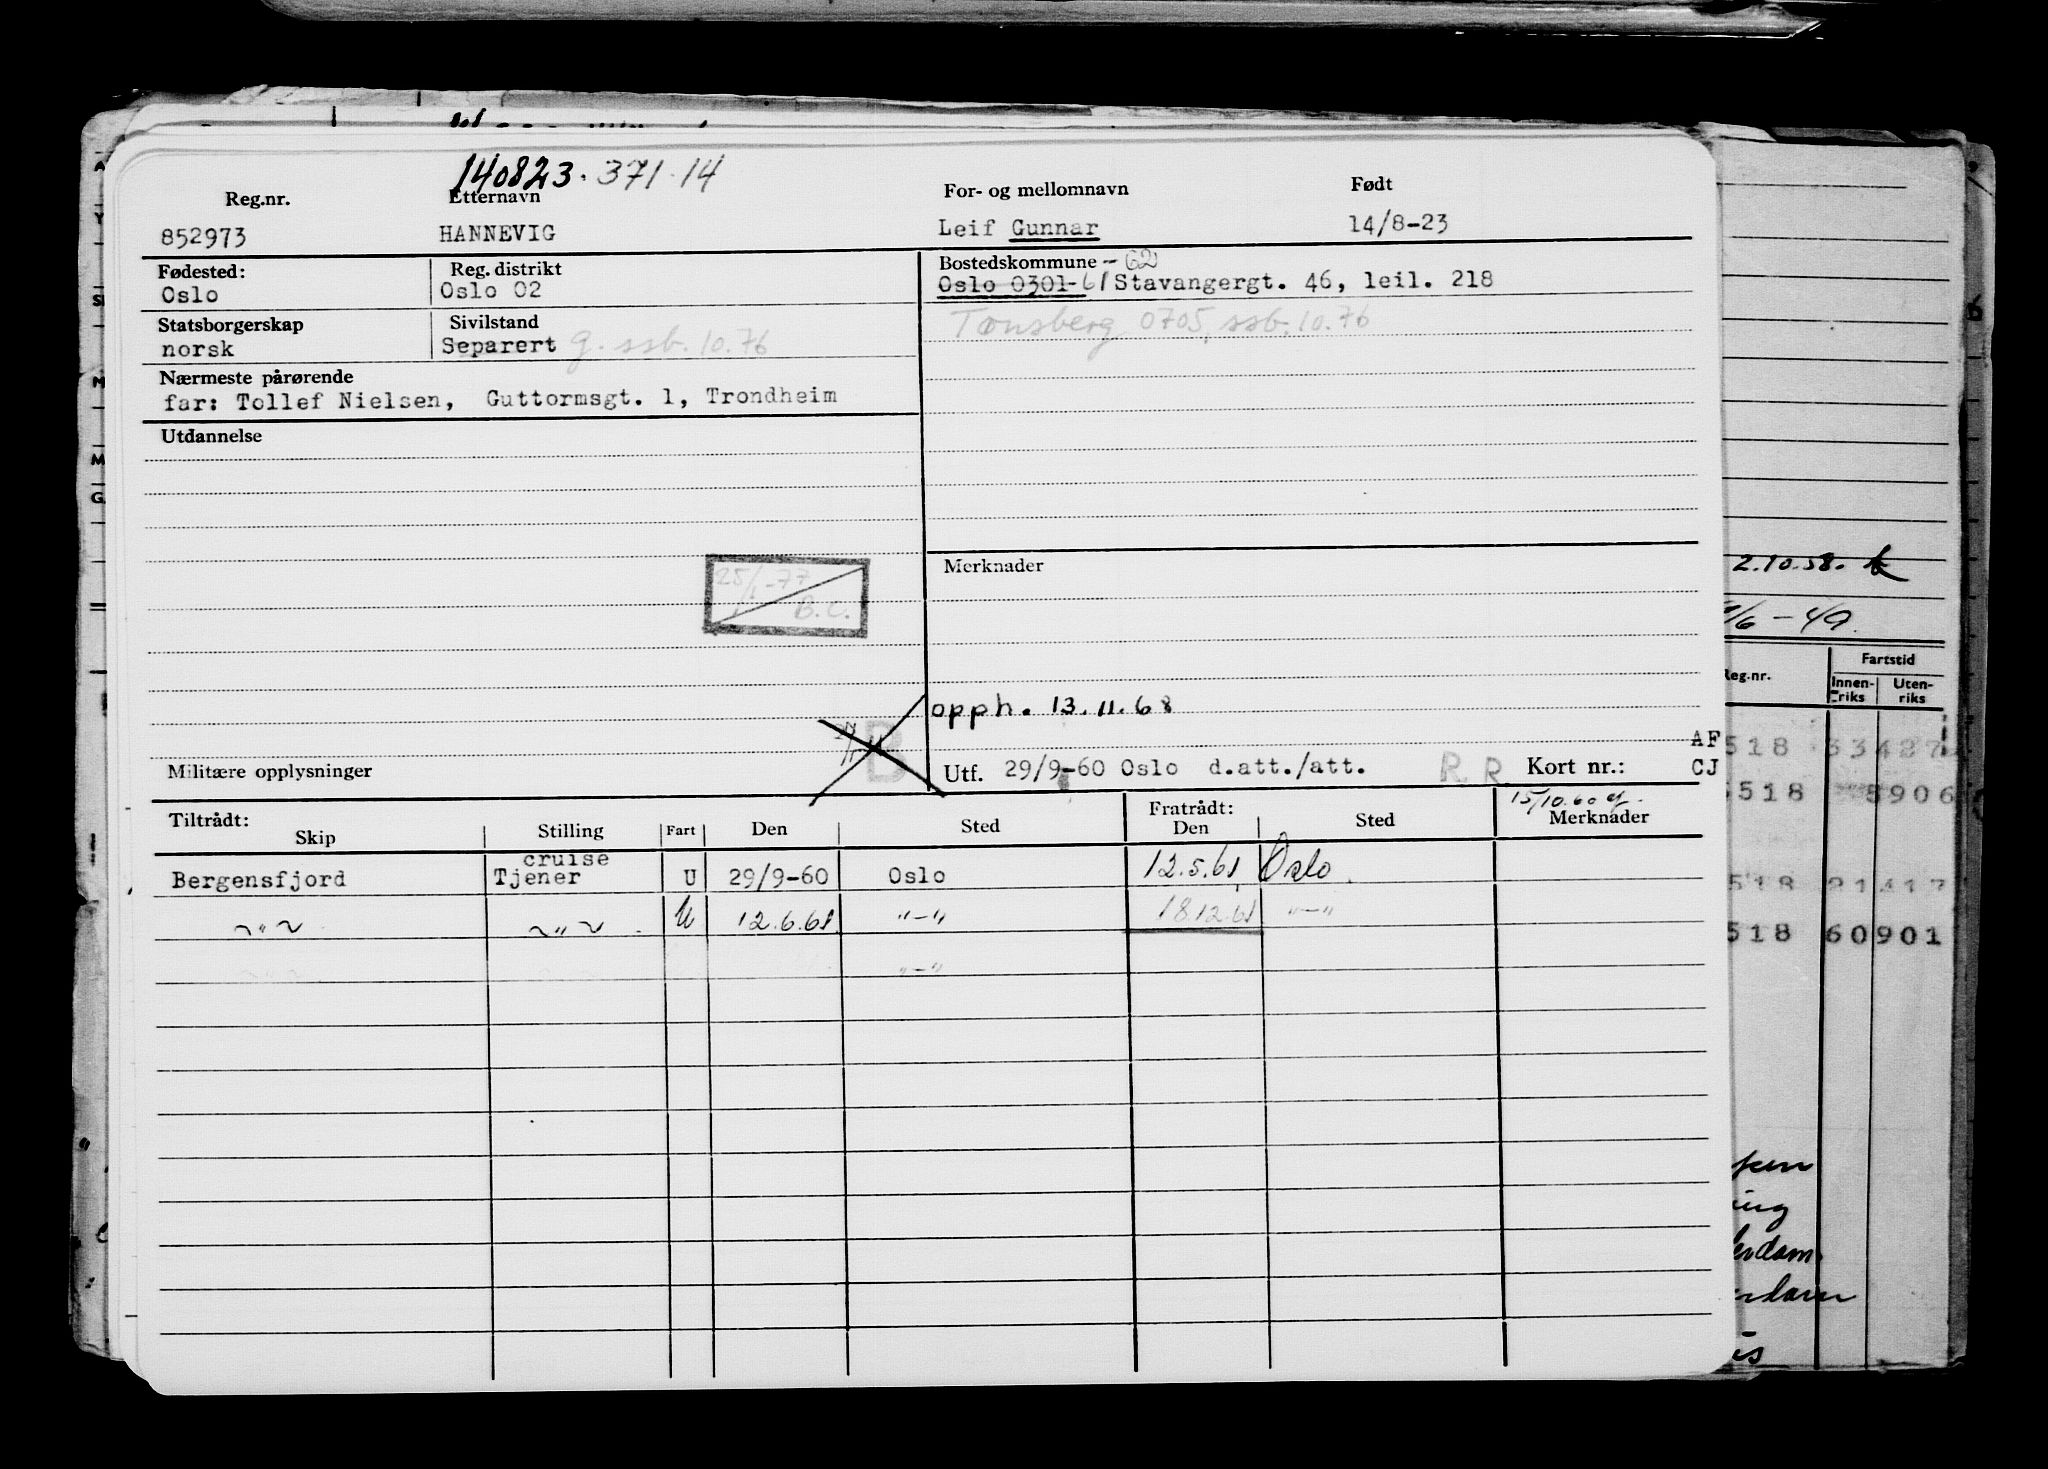 140823.371.14
Reg.nr. Etternavn For- og mellomnavn Født
852973 HANNEVIG Leif Gunnar 14/8-23
Fødested: Reg. distrikt Bostedskommune -62
Oslo Oslo 02 Oslo 0301-61 Stavangergt. 46, leil. 218
Statsborgerskap Sivilstand Tønsberg 0705, ssb. 10.76
norsk Separert g. ssb. 10.76
Nærmeste pårørende
far: Tollef Nielsen, Guttormsgt. 1, Trondheim
Utdannelse
25/1-77
B.C.
Merknader
opph. 13.11.68
B
Militære opplysninger
Utf. 29/9-60 Oslo d.att./att. R R Kort nr.:
AF
CJ
15/10.60
Tiltrådt: Fratrådt:
Skip Stilling Fart Den Sted Den Sted Merknader
cruise
Bergensfjord Tjener U 29/9-60 Oslo 12.5.61 Oslo
~"~ ~"~ U 12.6.61 "-" 18.12.61 "-"
"-"
2.10.58.
/6-49.
Reg.nr. Fartstid
Innen-riks Uten-riks
518 33427
518 5906
518 21417
518 60901